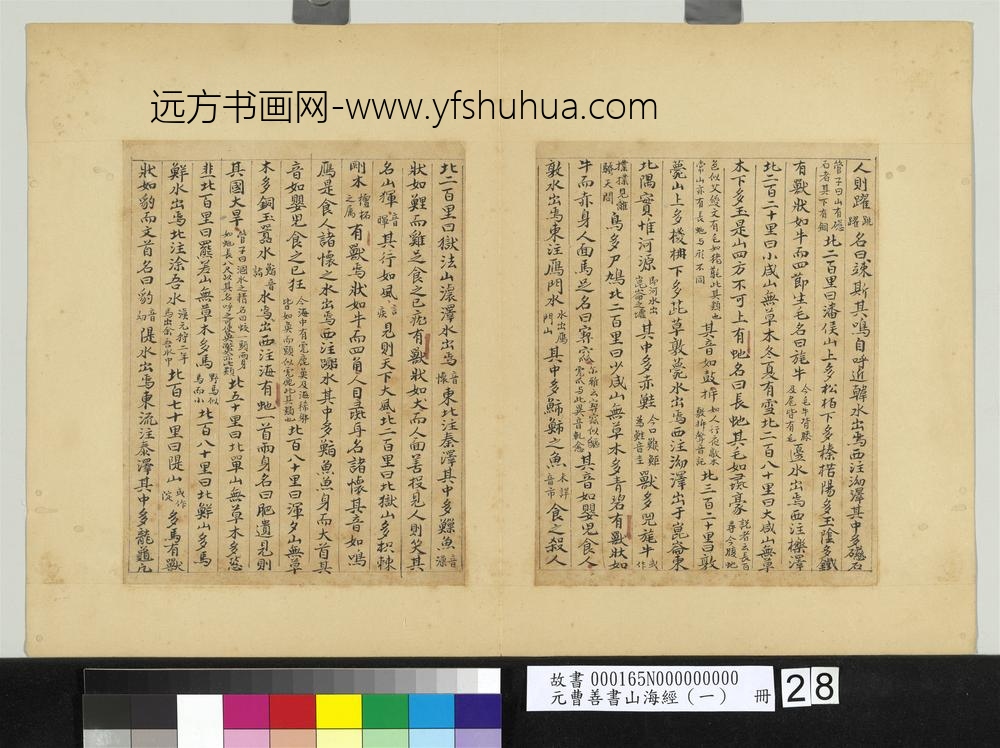 远方书画网-www.yfshuhua.com
人則躍跳躍名曰竦斯其鳴自呼近韓水出焉西注泑澤其中多磁石
管子曰山有磁石者其下有銅北二百里曰潘侯山上多松栢下多榛楛陽多玉陰多鐵
有獸狀如牛而四節生毛名曰旄牛今旄牛背膝及尾皆有毛邊水出焉西注櫟澤
北二百二十里曰小咸山無草木冬夏有雪北二百八十里曰大咸山無草
木下多玉是山四方不可上有虵名曰長虵其毛如彘豪說者云長百尋今蝮虵
色似艾綬文有毛如猪鬣此其類也常山亦有長虵与形不同其音如鼓柝如人行夜敲木柝聲音託北三百二十里曰敦
薨山上多棫枏下多茈草敦薨水出焉西注泑澤出于崑崙東
北隅實惟河源即河水出崑崙之墟其中多赤鮭今口鯸鮐為鮭音圭獸多兕旄牛或作
撲撲見離騷天問鳥多尸鳩北二百里曰少咸山無草木多青碧有獸狀如
牛而赤身人面馬足名曰窫窳尔雅云窫窳似貙其音如嬰児食人
敦水出焉東注鴈門水水出鴈門山其中多䰽䰽之魚未詳音市食之殺人
北二百里曰獄法山瀤澤水出焉音懷東北注泰澤其中多鱳魚音澡
狀如鯉而雞足食之已疣有獸狀如犬而人面善投見人則笑其
名山𤟤音暉其行如風言疾見則天下大風北二百里曰北獄山多枳棘
剛木檀柘之屬有獸焉狀如牛而四角人目彘耳名諸懷其音如鳴
鴈是食人諸懷之水出焉西注嚻水其中多鮨魚魚身而大首其
音如嬰児食之已狂今海中有虎鹿魚及海狶體皆如魚而頭似虎鹿此其類也北百八十里曰渾夕山無草
木多銅玉囂水出焉西注海有虵一首而身名曰肥遺見則
其國大旱管子曰涸水之精名曰蟡一頭而兩身如虵長八尺以其名呼之可使取魚龜此類北五十里曰北單山無草木多葱
韭北百里曰羆差山無草木多馬野馬似馬而小北百八十里曰北鮮山多馬
鮮水出焉北注涂吾水漢元狩二年馬出余吾水中北百七十里曰隄山或作㴜多馬有獸
狀如豹而文首名曰狕音幻隄水出焉東流注泰澤其中多龍龜
故書 000165N000000000
元曹善書山海經（一） 冊 28